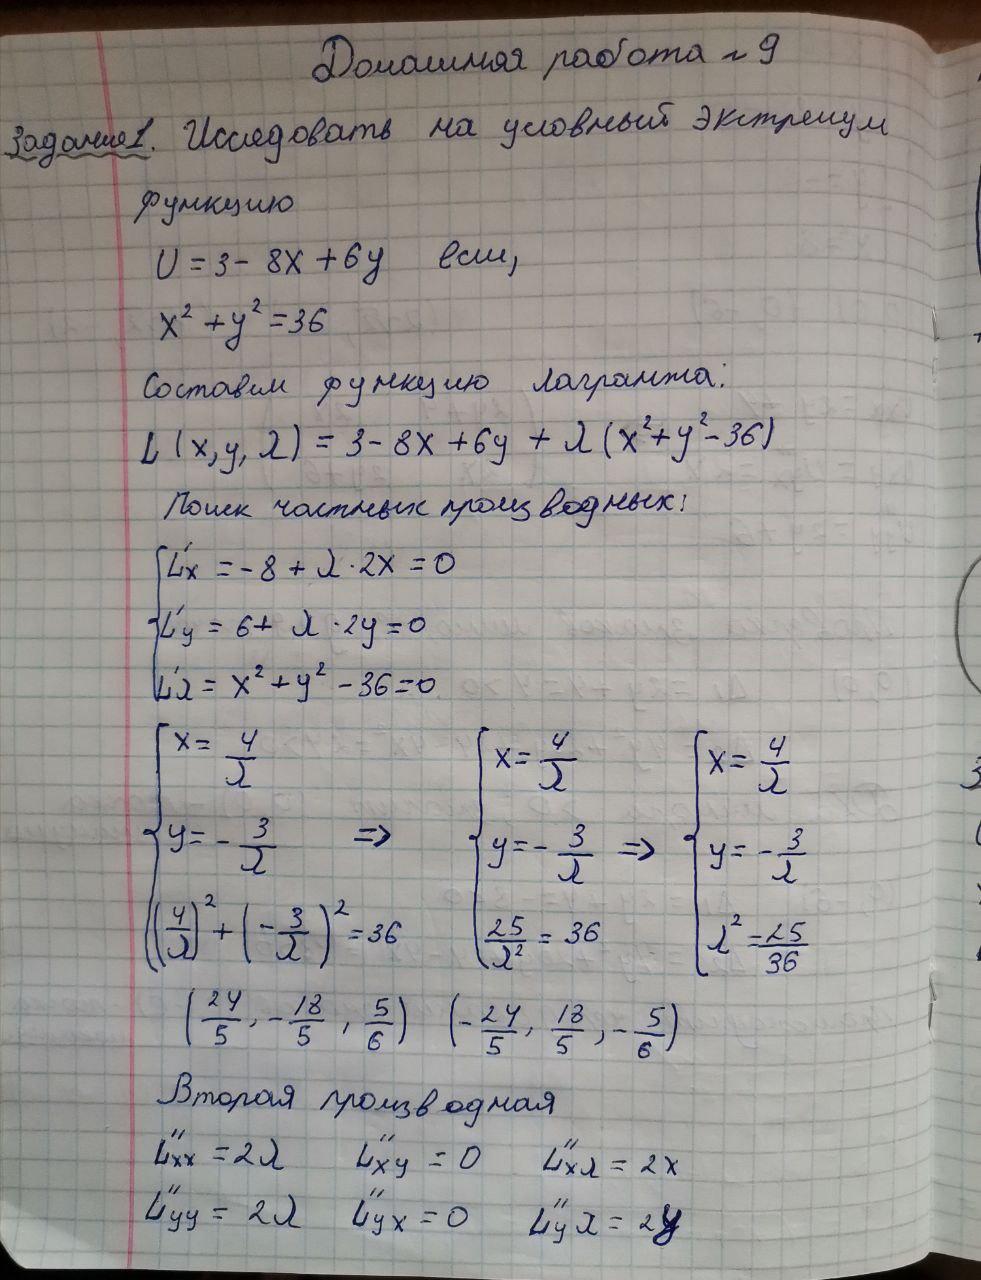 Домашняя работа ~ 9
Задание 1. Исследовать на условный экстремум
функцию
U = 3 - 8x + 6y если,
x² + y² = 36
Составим функцию лагранжа:
L (x, y, λ) = 3 - 8x + 6y + λ (x² + y² - 36)
Поиск частных производных:
L'x = -8 + λ · 2x = 0
L'y = 6 + λ · 2y = 0
L'λ = x² + y² - 36 = 0
x = 4/λ x = 4/λ x = 4/λ
y = - 3/λ => y = - 3/λ => y = - 3/λ
(4/λ)² + (- 3/λ)² = 36 25/λ² = 36 λ² = 25/36
(24/5, - 18/5, 5/6) (- 24/5, 18/5, - 5/6)
Вторая производная
L''xx = 2λ L''xy = 0 L''xλ = 2x
L''yy = 2λ L''yx = 0 L''yλ = 2y